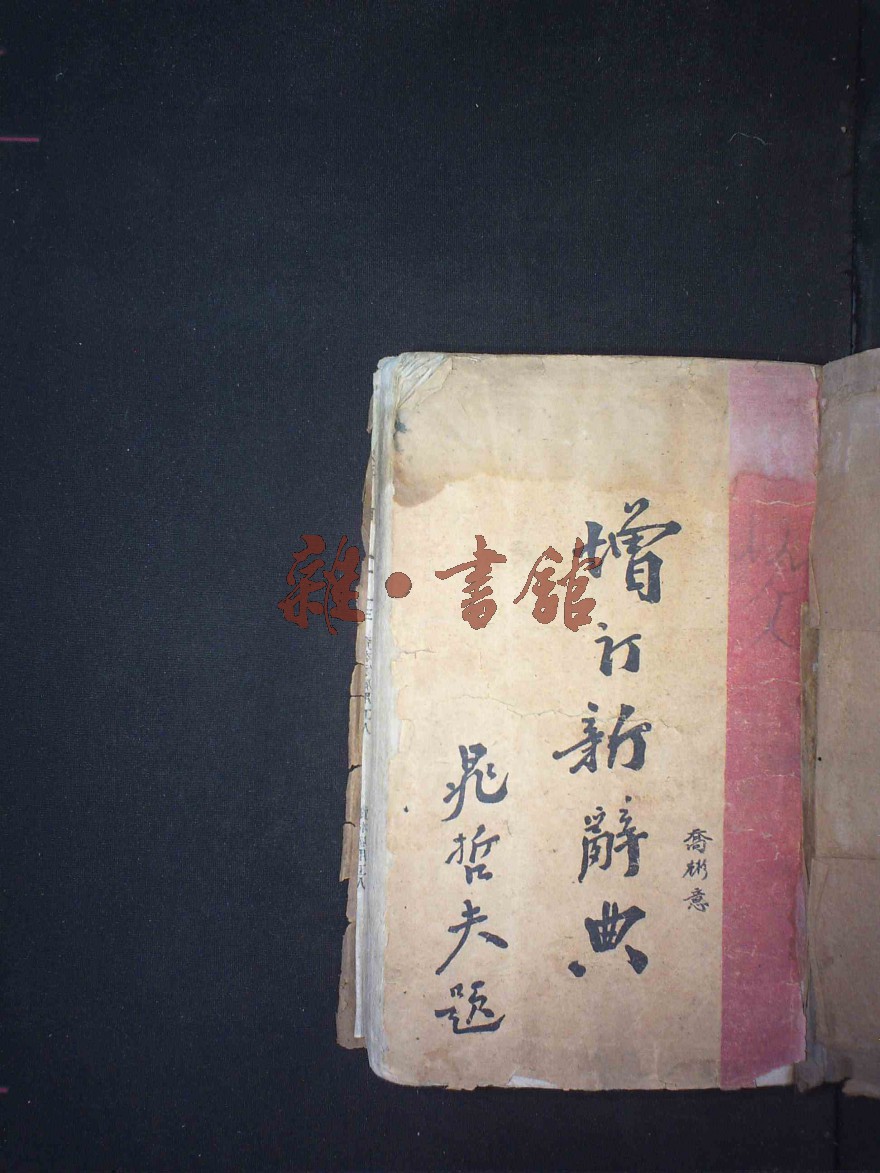 雜·書館
增訂新辭典
喬彬意
晁哲夫題